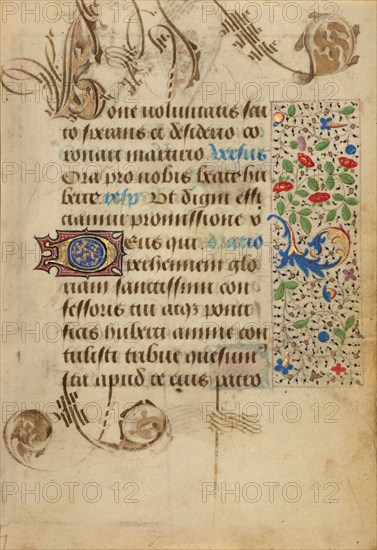 Bone voluntatis scu
to fixeras et desiderio co
ronari martirio versus
Ora pro nobis beate hu
berte resp Ut digni effi
ciamur promissione x
Deus qui oratio
perhennem glo
riam sanctissimi con
fessoris tui atqz ponti
ficis huberti anime con
tulisti tribue quesumus
ut apud te eius patro
PHOTO 12